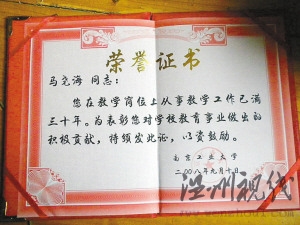 荣誉证书
马尧海 同志：
您在教学岗位上从事教学工作已满
三十年。为表彰您对学校教育事业做出的
积极贡献，特颁发此证，以资鼓励。
南京工业大学
二00八年九月十日